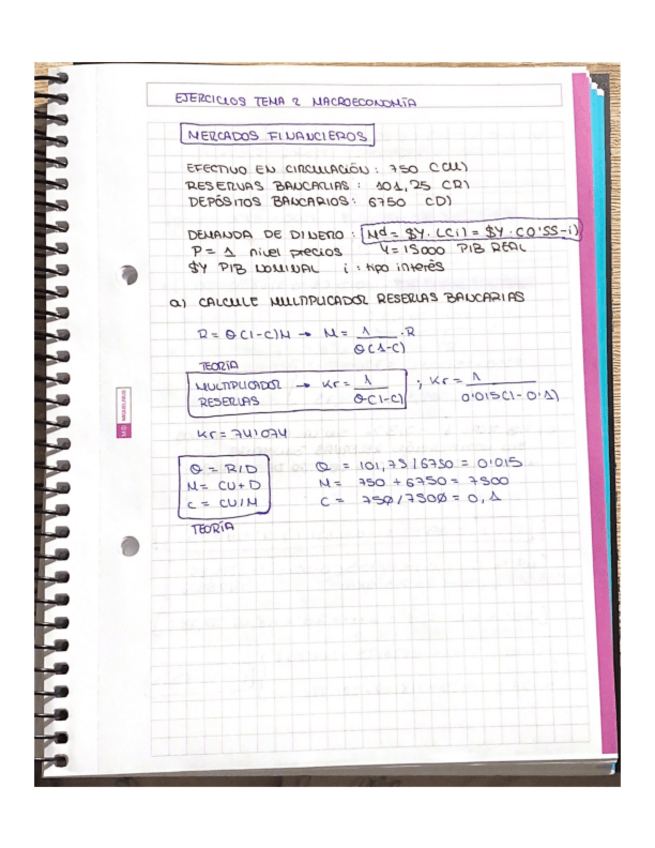 EJERCICIOS TEMA 2 MACROECONOMÍA
MERCADOS FINANCIEROS
EFECTIVO EN CIRCULACIÓN : 750 (CU)
RESERVAS BANCARIAS : 101,25 (R)
DEPÓSITOS BANCARIOS : 6750 (D)
DEMANDA DE DINERO : Md = $Y · L(i) = $Y · (0'55-i)
P = 1 nivel precios Y = 15000 PIB REAL
$Y PIB NOMINAL i : tipo interés
a) CALCULE MULTIPLICADOR RESERVAS BANCARIAS
R = θ(1-C)M → M = 1/θ(1-C) · R
TEORÍA
MULTIPLICADOR RESERVAS → Kr = 1/θ(1-C) ; Kr = 1/0'015(1-0'1)
Kr = 74'074
θ = R/D θ = 101,75/6750 = 0'015
M = CU+D M = 750 + 6750 = 7500
C = CU/M C = 750/7500 = 0,1
TEORÍA
MIQUELRIUS